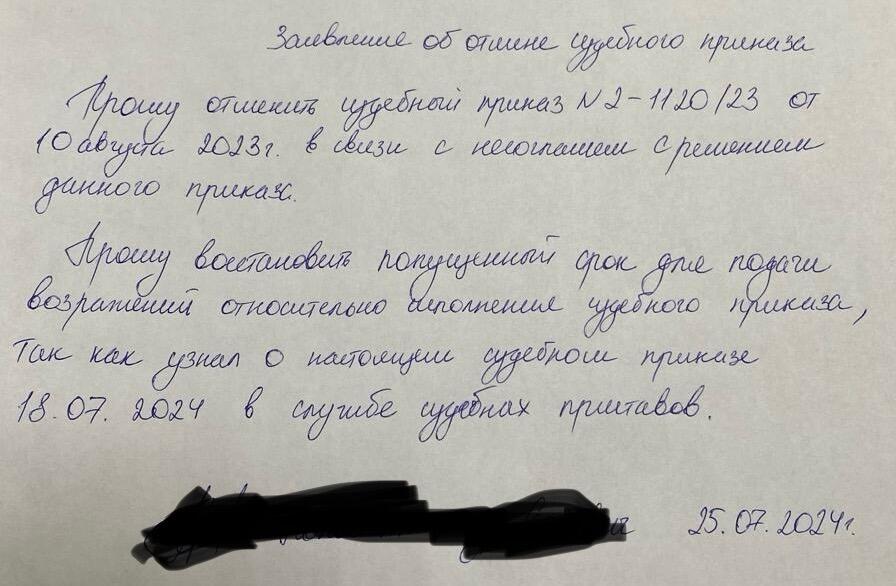 Заявление об отмене судебного приказа
Прошу отменить судебный приказ N2-1120/23 от
10 августа 2023г. в связи с несогласием с решением
данного приказа.
Прошу восстановить попущенный срок для подачи
возражений относительно исполнения судебного приказа,
Так как узнал о настоящем судебном приказе
18.07.2024 в службе судебнах приставов.
25.07.2024г.